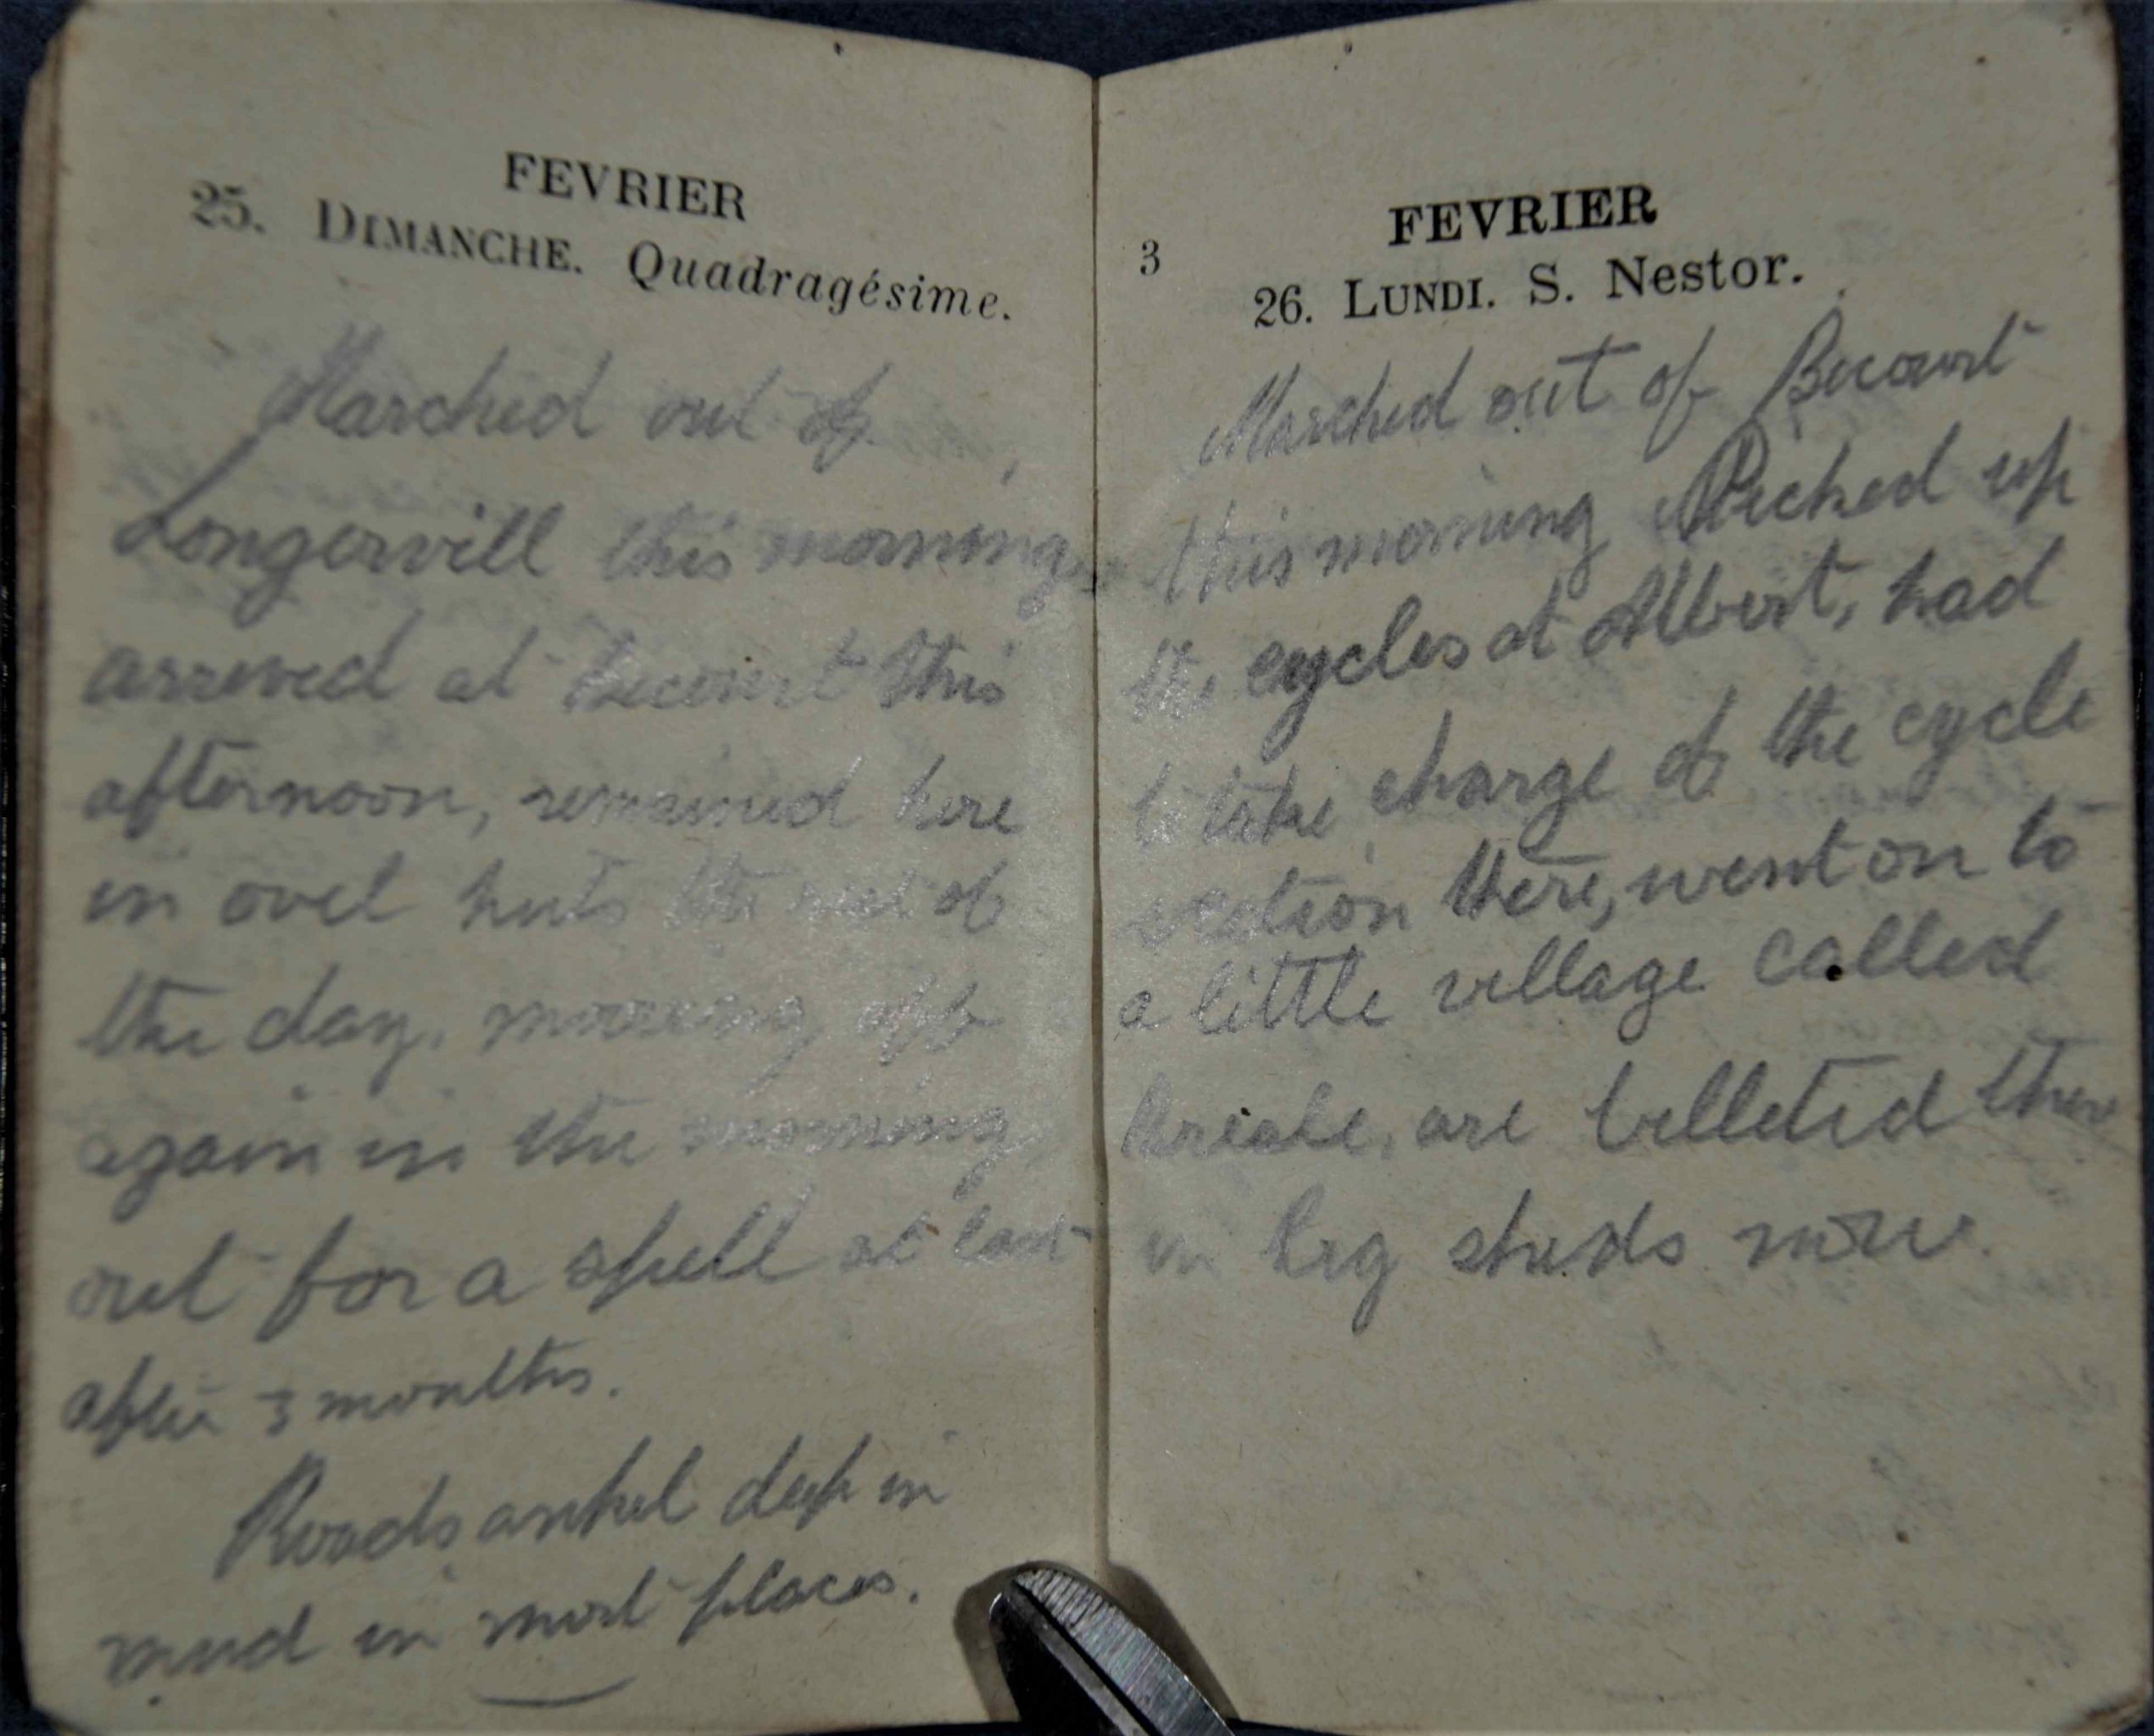 FEVRIER
25. DIMANCHE. Quadragésime.
Marched out of
Longervill this morning
arrived at Becourt this
afternoon, remained here
in ovel huts the rest of
the day, moving off
again in the morning
out for a spell at last
after 3 months.
Roads ankel deep in
mud in most places.
3
FEVRIER
26. LUNDI. S. Nestor.
Marched out of Becourt
this morning Picked up
the cycles at Albert, had
to take charge of the cycle
section there, went on to
a little village called
are billeted there
in big sheds now.